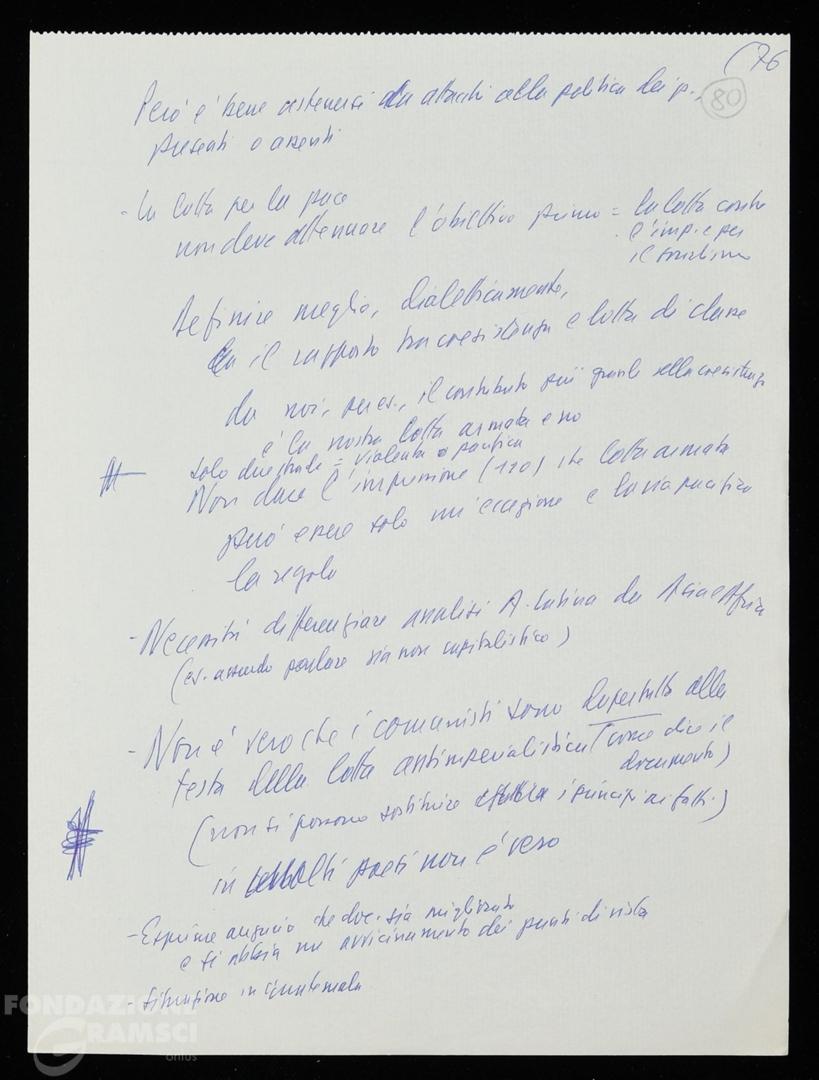 (76
80
Però è bene astenersi da attacchi alla politica dei p.
presenti o assenti
- La lotta per la pace
non deve attenuare l'obiettivo primo = la lotta contro
l'imp. e per
il socialismo
Definire meglio, dialetticamente,
il rapporto tra coesistenza e lotta di classe
da noi, per es., il contributo più grande alla coesistenza
è la nostra lotta armata e no
solo due strade = violenta o pacifica
Non dare l'impressione (120) che lotta armata
può essere solo un'eccezione e la via pacifica
la regola
- Necessità differenziare analisi A. Latina da Asia e Africa
(es. assurdo parlare via non capitalistica)
- Non è vero che i comunisti sono dapertutto alla
testa della lotta antimperialistica (come dice il
documento)
(non si possono sostituire i principi ai fatti)
in molti paesi non è vero
- Esprime augurio che doc. sia migliorato
e si abbia un avvicinamento dei punti di vista
- Situazione in Guatemala
FONDAZIONE
GRAMSCI
onlus